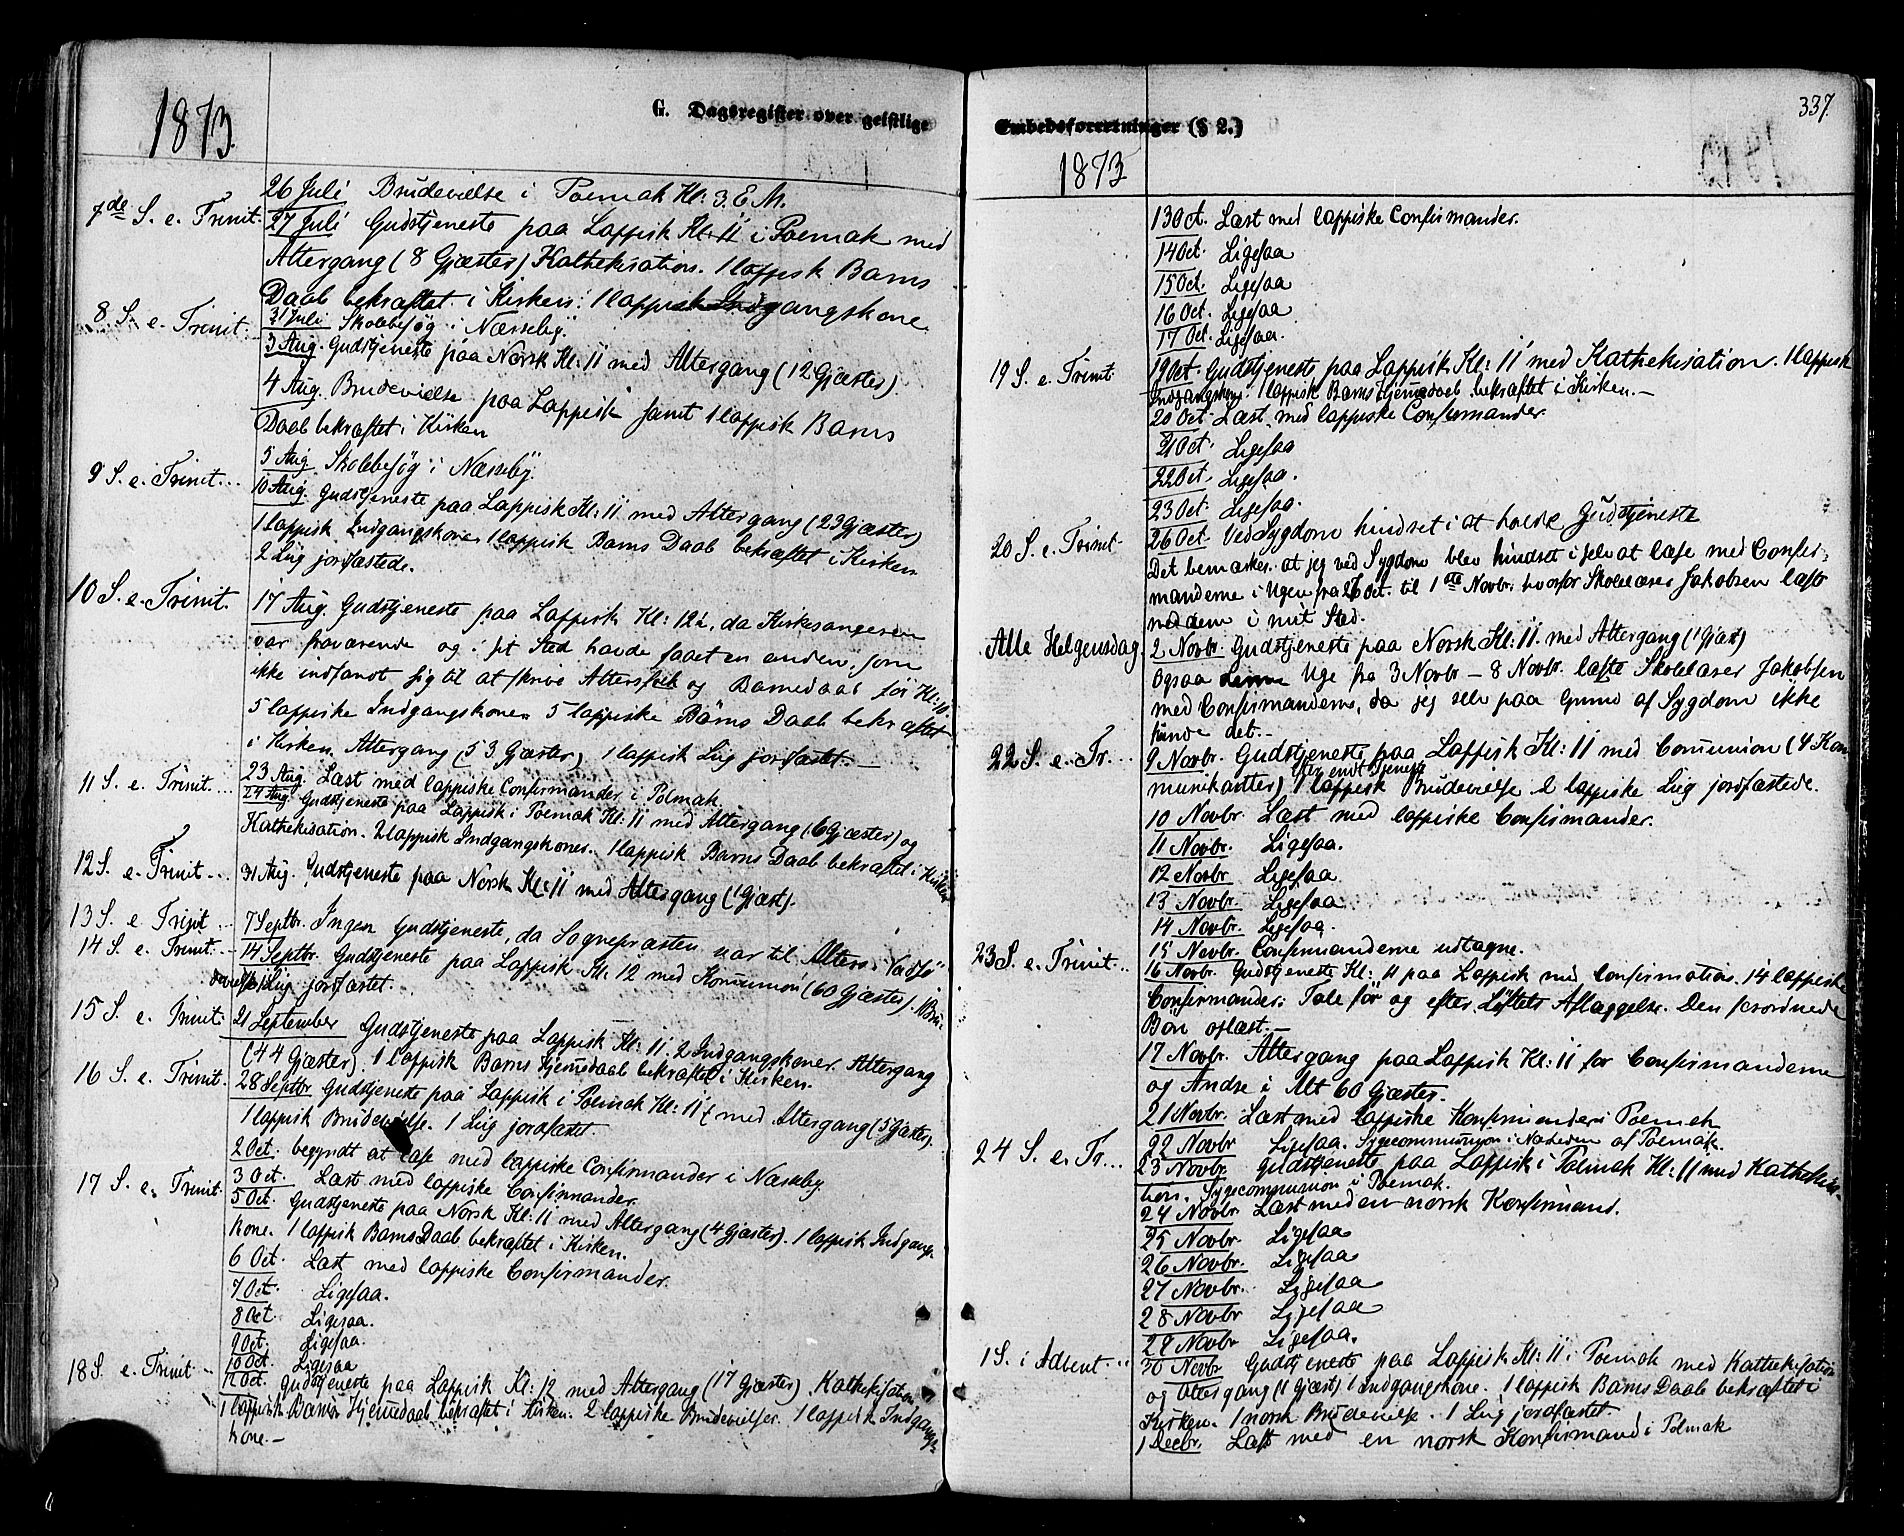 1873.
G. Dagsregister over geistlige
26 Juli Brudevielse i Polmak Kl: 3. E. M.
7de S. e. Trinit. 27 Juli Gudstjeneste paa Lappisk Kl: 11 i Polmak med
Altergang (8 Gjæster) Kathekisation. 1 lappisk Barns
Daab bekræftet i Kirken. 1 lappisk Indgangskone.
31 Juli Skolebesøg i Næsseby.
8 S. e. Trinit. 3 Aug. Gudstjeneste paa Norsk Kl: 11 med Altergang (12 Gjæster).
4 Aug. Brudevielse paa Lappisk samt 1 lappisk Barns
Daab bekræftet i Kirken
5 Aug. Skolebesøg i Næsseby.
9 S. e. Trinit... 10 Aug. Gudstjeneste paa Lappisk Kl: 11 med Altergang (23 Gjæster)
1 lappisk Indgangskone 1 lappisk Barns Daab bekræftet i Kirken
2 Liig jordfæstede.
10 S. e. Trinit. 17 Aug. Gudstjeneste paa Lappisk Kl: 12½, da Kirkesangeren
var fraværende og i sit Sted havde faaet en anden, som
ikke indfandt sig til at skrive Altersfolk og Barnedaab før Kl: 10.
5 lappiske Indgangskoner 5 lappiske Børns Daab bekræftet
i Kirken. Altergang (53 Gjæster) 1 lappisk Liig jordfæstet.—
23 Aug. Læst med lappiske Confirmander i Polmak.
11 S. e. Trinit... 24 Aug. Gudstjeneste paa Lappisk i Polmak Kl: 11 med Altergang (6 Gjæster) og
Kathekisation. 2 lappisk Indgangskoner. 1 lappisk Barns Daab bekræftet i Kirken
12 S. e. Trinit... 31 Aug. Gudstjeneste paa Norsk Kl: 11 med Altergang (1 Gjæst).
13 S. e. Trinit... 7 Septbr. Ingen Gudstjeneste, da Sognepræsten var til Alters i Vadsø
14 S. e. Trinit... 14 Septbr. Gudstjeneste paa Lappisk Kl. 12 med Kommunion (60 Gjæster). 1 Bru-
devielse 1 Liig jordfæstet.
15 S. e. Trinit. 21 September Gudstjeneste paa Lappisk Kl: 11. 2 Indgangskoner. Altergang
(44 Gjæster). 1 lappisk Barns Hjemmedaab bekræftet i Kirken.
16 S. e. Trinit. 28 Septbr Gudstjeneste paa Lappisk i Polmak Kl: 11 med Altergang (5 Gjæster).
1 lappisk Brudevielse. 1 Liig jordfæstet.
2 Oct. begyndt at læse med lappiske Confirmander i Næsseby
3 Oct. Læst med lappiske Confirmander.
17 S. e. Trinit. 5 Oct. Gudstjeneste paa Norsk Kl: 11 med Altergang (4 Gjæster). 1 lappisk Indgangs-
kone. 1 lappisk Barns Daab bekræftet i Kirken.
6 Oct. Læst med lappiske Confirmander.
7 Oct. Ligesaa.
8 Oct. Ligesaa.
9 Oct. Ligesaa.
10 Oct. Ligesaa
18 S. e. Trinit.. 12 Oct. Gudstjeneste paa Lappisk Kl: 12 med Altergang (17 Gjæster). Kathekisation
1 lappisk Barns Hjemmedaab bekræftet i Kirken. 2 lappiske Brudevielser. 1 lappisk Indgangs-
kone.—
Embedsforretninger (§ 2.)
337.
1873
13 Oct. Læst med lappiske Confirmander.
14 Oct. Ligesaa
15 Oct. Ligesaa
16 Oct. Ligesaa
17 Oct. Ligesaa.
19 S. e. Trinit. 19 Oct. Gudstjeneste paa Lappisk Kl: 11 med Kathekisation. 1 lappisk
Indgangskone. 1 lappisk Barns Hjemmedaab bekræftet i Kirken.—
20 Oct. Læst med lappiske Confirmander.
21 Oct. Ligesaa
22 Oct. Ligesaa.
23 Oct. Ligesaa.
20 S. e. Trinit. 26 Oct. Ved Sygdom hindret i at holde Gudstjeneste
Det bemærkes at jeg ved Sygdom blev hindret i selv at læse med Confir-
manderne i Ugen fra 26 Oct. til 1ste Novbr. hvorfor Skolelærer Jakobsen læste
med dem i mit Sted.
Alle Helgensdag. 2 Novbr. Gudstjeneste paa Norsk Kl: 11. med Altergang (1 Gjæst)
Ogsaa denne Uge fra 3 Novbr – 8 Novbr. læste Skolelærer Jakobsen
med Confirmanderne, da jeg selv paa Grund af Sygdom ikke
kunde det.—
22 S. e. Tr... 9 Novbr. Gudstjeneste paa Lappisk Kl: 11 med Communion (4 Kom
munikantter) 1 lappisk Brudevielse efter endt Tjeneste 2 lappiske Liig jordfæstede.
10 Novbr. Læst med lappiske Confirmander.
11 Novbr. Ligesaa.
12 Novbr Ligesaa
13 Novbr. Ligesaa
14 Novbr. Ligesaa.
15 Novbr. Confirmanderne udtagne.
23 S. e. Trinit.. 16 Novbr. Gudstjeneste Kl: 11 paa Lappisk med Confirmation. 14 lappiske
Confirmander. Tale før og efter Løftets Aflæggelse. Den forordnede
Bøn oplæst.—
17 Novbr. Altergang paa Lappisk Kl: 11 for Confirmanderne
og Andre i Alt 60 Gjæster.
21 Novbr. Læst med lappiske Konfirmander i Polmak
22 Novbr Ligesaa. Sygecommunion i Nærheden af Polmak.
24 S. e. Tr... 23 Novbr. Gudstjeneste paa Lappisk i Polmak Kl: 11 med Kathekisa-
tion. Sygecommunion i Polmak.
24 Novbr Læst med en norsk Konfirmand.
25 Novbr. Ligesaa
26 Novbr. Ligesaa
27 Novbr. Ligesaa
28 Novbr Ligesaa
29 Novbr Ligesaa.
1 S. i Advent.. 30 Novbr Gudstjeneste paa Lappisk Kl: 11 i Polmak med Kathekisation
og Altergang (1 Gjæst) 1 Indgangskone. 1 lappisk Barns Daab bekræftet i
Kirken. 1 norsk Brudevielse. 1 Liig jordfæstet.
1 Decbr. Læst med en norsk Konfirmand i Polmak